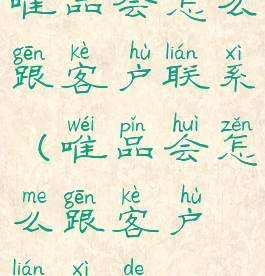 唯品会怎么
gēn kè hù lián xì
跟客户联系
wéi pǐn huì zěn
(唯品会怎
me gēn kè hù
么跟客户
lián xì de